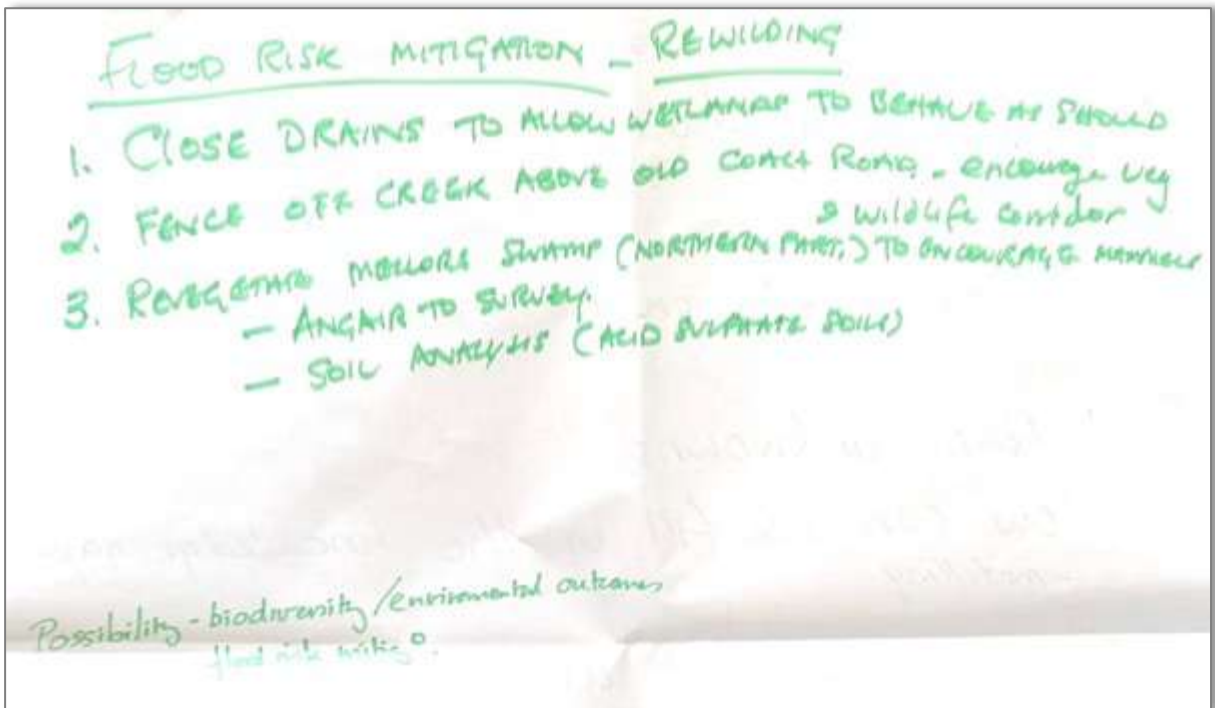 FLOOD RISK MITIGATION - REWILDING
1. CLOSE DRAINS TO ALLOW WETLANDS TO BEHAVE AS SHOULD
2. FENCE OFF CREEK ABOVE OLD COACH ROAD - encourage veg
& wildlife corridor
3. REVEGETATE MELLORS SWAMP (NORTHERN PART.) TO ENCOURAGE
- ANGAIR TO SURVEY.
- SOIL ANALYSIS (ACID SULPHATE SOILS)
Possibility - biodiversity / enviromental outcomes
flood risk mitig°.